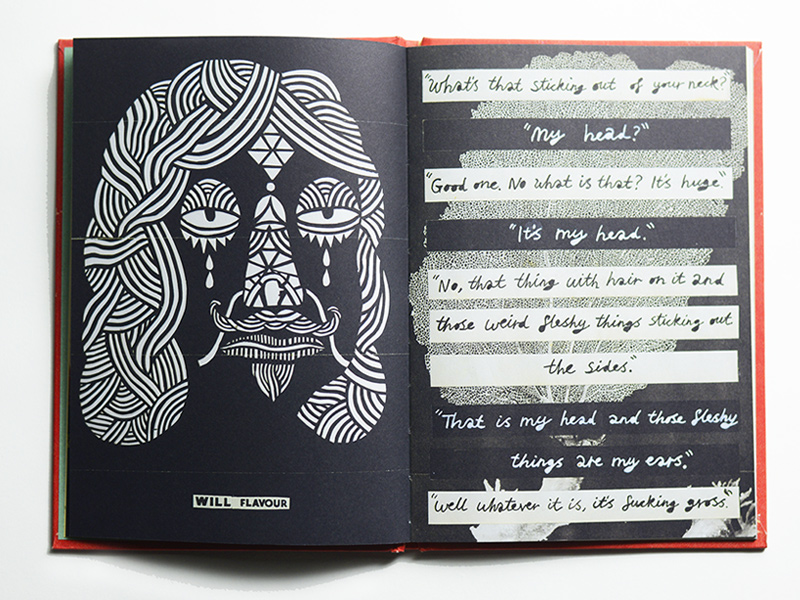 WILL FLAVOUR
"What's that sticking out of your neck?
"My head?"
"Good one. No what is that? It's huge."
"It's my head."
"No, that thing with hair on it and
those weird fleshy things sticking out
the sides."
"That is my head and those fleshy
things are my ears."
"well whatever it is, it's fucking gross."